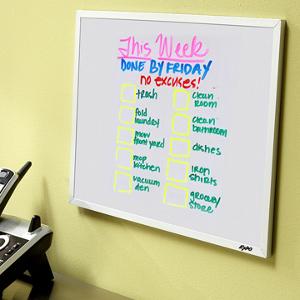 This Week
DONE BY FRIDAY
no excuses!
trash
fold
laundry
mow
front yard
mop
kitchen
vacuum
den
clean
room
clean
bathroom
dishes
iron
shirts
grocery
store
EXPO